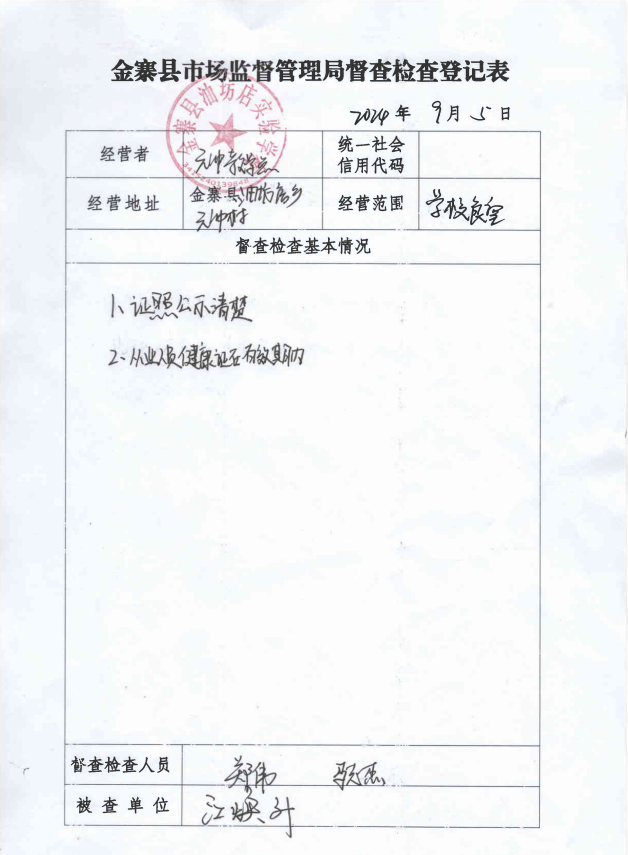 金寨县市场监督管理局督查检查登记表
金寨县油坊店实验学
2024 年 9 月 5 日
经营者 元冲教学点 统一社会信用代码
经营地址 金寨县油坊店乡元冲村 经营范围 学校食堂
督查检查基本情况
1、证照公示清楚
2、从业人员健康证在有效期内
督查检查人员 郑伟
被查单位 江焕升